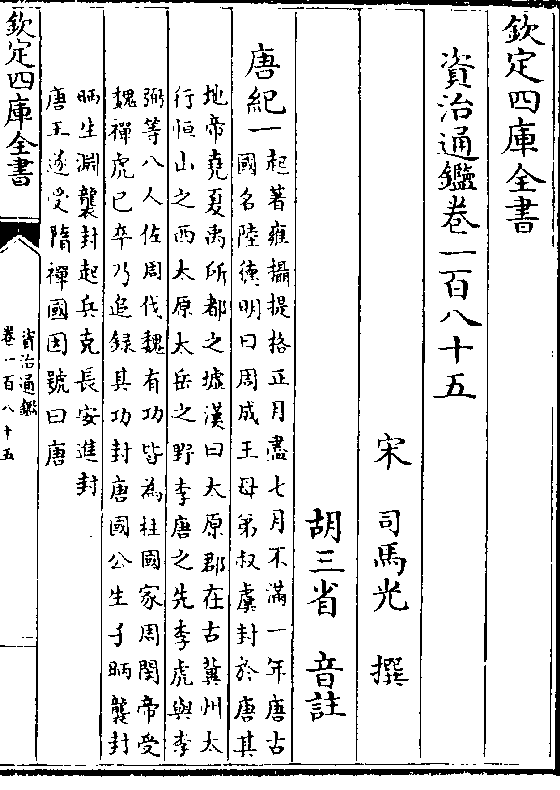 欽定四庫全書
資治通鑑卷一百八十五
宋 司馬光 撰
胡三省 音註
唐紀一
起著雍攝提格正月盡七月不滿一年唐古
國名陸徳明曰周成王母弟叔虞封於唐其
地帝堯夏禹所都之墟漢曰太原郡在古冀州太
行恒山之西太原太岳之野李唐之先李虎與李
弼等八人佐周伐魏有功皆為柱國家周閔帝受
魏禪虎已卒乃追録其功封唐國公生子昞襲封
昞生淵襲封起兵克長安進封
唐王遂受隋禪國因號曰唐
欽定四庫全書
資治通鑑
卷一百八十五